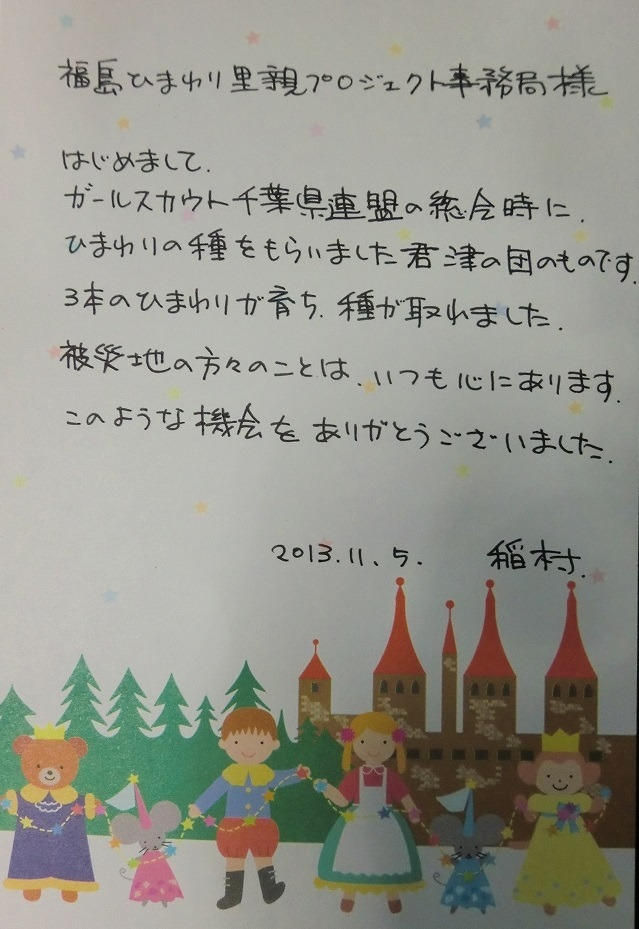 福島ひまわり里親プロジェクト事務局様
はじめまして.
ガールスカウト千葉県連盟の総会時に.
ひまわりの種をもらいました君津の団のものです.
3本のひまわりが育ち.種が取れました.
被災地の方々のことは.いつも心にあります.
このような機会をありがとうございました.
2013.11.5. 稲村.